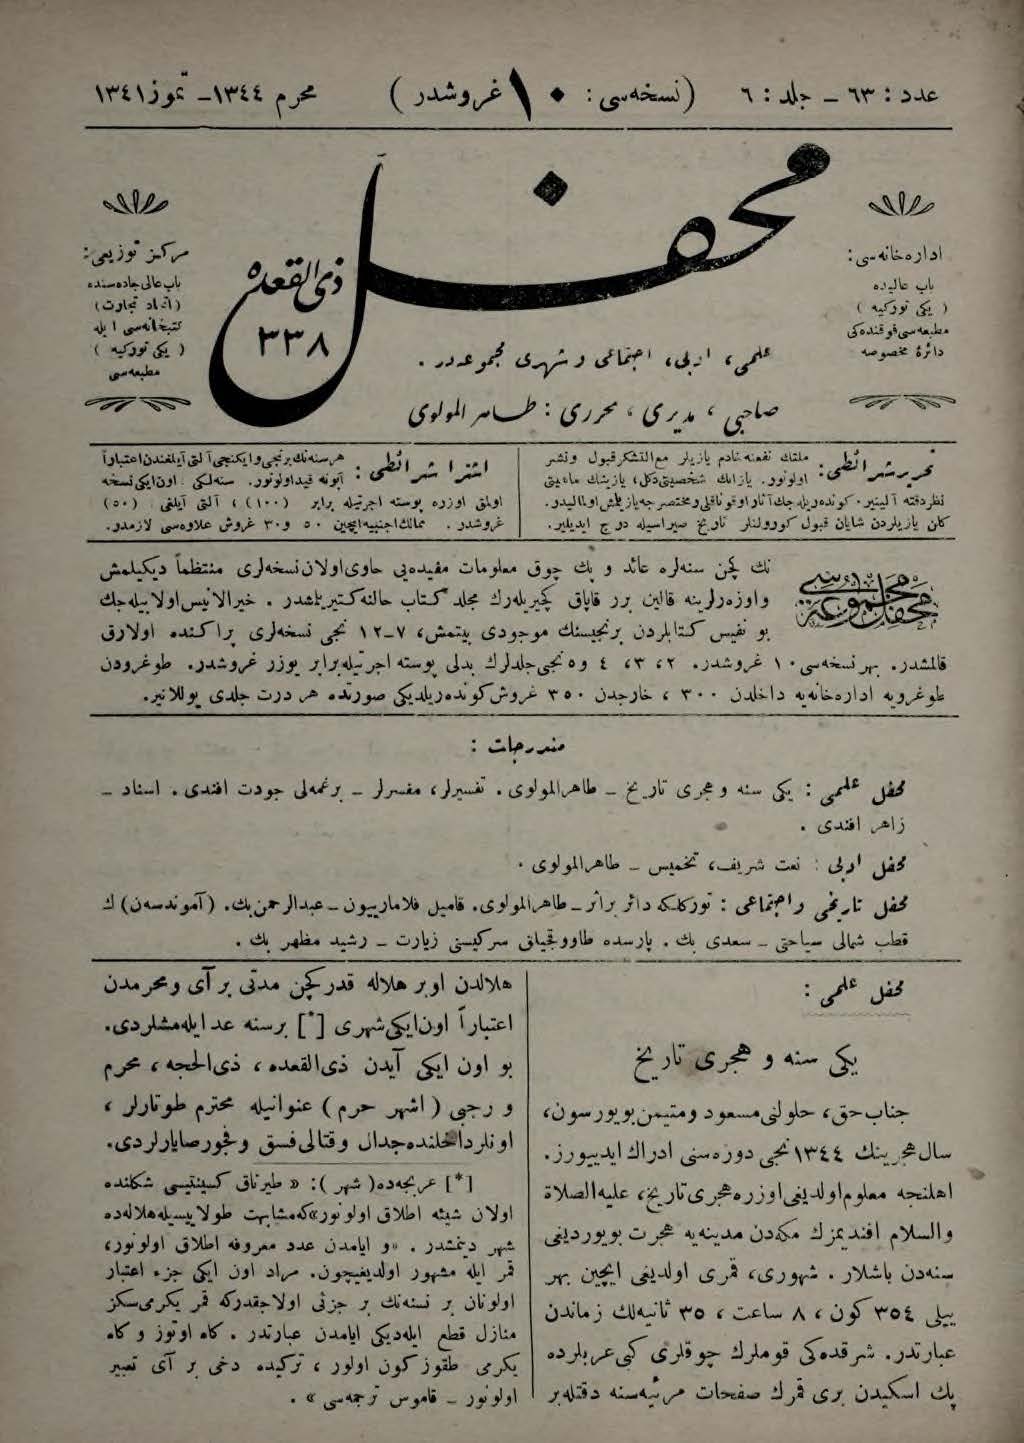 عدد : ٦٣ – جلد : ٦ (نسخه‌سی : ١٠ غروشدر ) محرم ١٣٤٤– تموز ١٣٤١
محفل
ذی القعده
٣٣٨
اداره‌خانه‌سی:
باب عالیده
( یکی تورکیه )
مطبعه‌سی‌فوقنده‌کی
دائرۀ مخصوصه
مرکز توزیعی:
باب‌عالی‌جاده‌سنده
(اتحاد تجارت)
کتبخانه‌سی ایله
( یکی تورکیه )
مطبعه‌سی
علمی ، ادبی ، اجتماعی و شهری مجموعه‌در .
صاحبی ، مدیری ، محرری : طاهر المولوی
تحریر شرائطی: ملتك نفعنه خادم یازیلر مع‌التشکر قبول ونشر
اولونور. یازانك شخصیتی‌دکل، یازینك ماهیتی
نظردقته آلینیر. کوندریله‌جك آثار اوقوناقلی‌ومختصرجه‌یازیلمش‌اولمالیدر.
کلن یازیلردن شایان قبول کورولنلر تاریخ صیراسیله درج ایدیلیر.
اشتراك شرائطی : هرسنه‌نك‌برنجی‌وایکنجی‌آلتی‌آیلغندن‌اعتباراً
آبونه قیداولونور. سنه‌لکی اون‌ایکی‌نسخه
اولمق اوزره پوسته اجرتیله برابر (١٠٠) ، آلتی آیلغی (٥٠)
غروشدر . ممالك‌اجنبیه‌ایچین ٥٠ و٣٠ غروش علاوه‌سی لازمدر.
محفل مجموعه‌سی
نك کچن سنه‌لره عائد و پك چوق معلومات مفیده‌یی حاوی‌اولان‌نسخه‌لری منتظماً دیکیلمش
واوزرلرینه قالین برر قاپاق کچیریله‌رك مجلد کتاب حالنه کتیریلمشدر . خیرالانیس‌اولابیله‌جك
بو نفیس کتابلردن برنجیسنك موجودی بیتمش، ٧–١٢ نجی نسخه‌لری پراکنده اولارق
قالمشدر. بهر نسخه‌سی ١٠ غروشدر. ٢، ٣، ٤ و٥ نجی‌جلدلرك بدلی پوسته اجرتیله‌برابر یوزر غروشدر. طوغرودن
طوغرویه اداره‌خانه‌یه داخلدن ٣٠٠ ، خارجدن ٣٥٠ غروش‌کوندریلدیکی صورتده هر درت جلدی یوللانیر.
مندرجات :
محفل علمی : یکی سنه و هجری تاریخ – طاهرالمولوی. تفسیرلر، مفسرلر – برغمه‌لی جودت افندی. اسناد –
زاهر افندی .
محفل ادبی : نعت شریف، تخمیس – طاهرالمولوی .
محفل تاریخی و اجتماعی : تورکلکه دائر براثر– طاهرالمولوی. قامیل فلاماریون– عبدالرحمن‌بك. (آموندسه‌ن) ك
قطب شمالی سیاحتی – سعدی بك . پارسده طاووقجیانی سرکیسنی زیارت – رشید مظهر بك .
محفل علمی :
یکی سنه و هجری تاریخ
جناب‌حق، حلولنی‌مسعود ومتیمن‌بویورسون،
سال‌هجرینك ١٣٤٤نجی دوره‌سنی ادراك ایدییورز.
اهلنجه معلوم‌اولدیغی‌اوزره‌هجری‌تاریخ، علیه‌الصلاة
والسلام افندیمزك مکه‌دن مدینه‌یه هجرت بویوردیغی
سنه‌دن باشلار . شهوری، قمری اولدیغی ایچین بهر
ییلی ٣٥٤ کون ، ٨ ساعت ، ٣٥ ثانیه‌لك زماندن
عبارتدر. شرقده‌کی قوملرك چوقلری کبی‌عربلرده
پك اسکیدن بری قمرك صفحات مرئیه‌سنه دقتله‌بر
هلالدن اوبر هلاله قدرکچن مدتی بر آی ومحرمدن
اعتباراً اون‌ایکی‌شهری [*] برسنه عد ایله‌مشلردی.
بو اون ایکی آیدن ذی‌القعده ، ذی‌الحجه ، محرم
و رجبی ( اشهر حرم ) عنوانیله محترم طوتارلر ،
اونلرداخلنده‌جدال وقتالی‌فسق وفجورصایارلردی.
[*] عربجه‌ده( شهر ): « طیرناق کسینتیسی شکلنده
اولان شیئه اطلاق اولونور»که‌مشابهت طولاییسیله‌هلاله‌ده
شهر دینمشدر . «و ایامدن عدد معروفه اطلاق اولونور،
قمر ایله مشهور اولدیغیچون. مراد اون ایکی جزء اعتبار
اولونان بر نسنه‌نك بر جزئی اولاجقدرکه قمر یکرمی‌سکز
منازل قطع ایله‌دیکی ایامدن عبارتدر . کاه اوتوز و کاه
یکرمی طقوز کون اولور ، ترکیده دخی بر آی تعبیر
اولونور – قاموس ترجمه‌سی » .